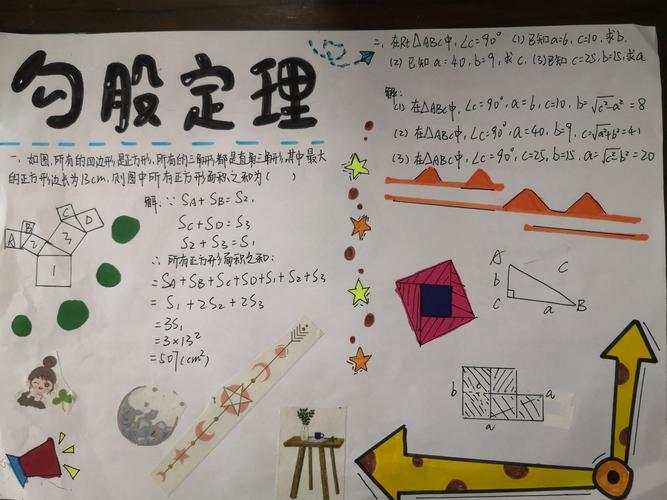 勾股定理
一、如图,所有的四边形是正方形,所有的三角形都是直角三角形,其中最大
的正方形边长为13cm,则图中所有正方形面积之和为( )
解:∵ SA+SB=S2,
SC+SD=S3
S2+S3=S1
∴ 所有正方形面积之和:
=SA+SB+SC+SD+S1+S2+S3
= S1+2S2+2S3
=3S1
=3×13²
=507(cm²)
A
B
C
D
2
3
1
二、在Rt△ABC中,∠C=90° (1)已知a=6,c=10,求b.
(2)已知a=40,b=9,求c.(3)已知c=25,b=15,求a
解:
(1)在△ABC中,∠C=90°,a=6,c=10,b=√c²-a²=8
(2)在△ABC中,∠C=90°,a=40,b=9,c=√a²+b²=41
(3)在△ABC中,∠C=90°,c=25,b=15,a=√c²-b²=20
A
c
b
C
a
B
b
a
a